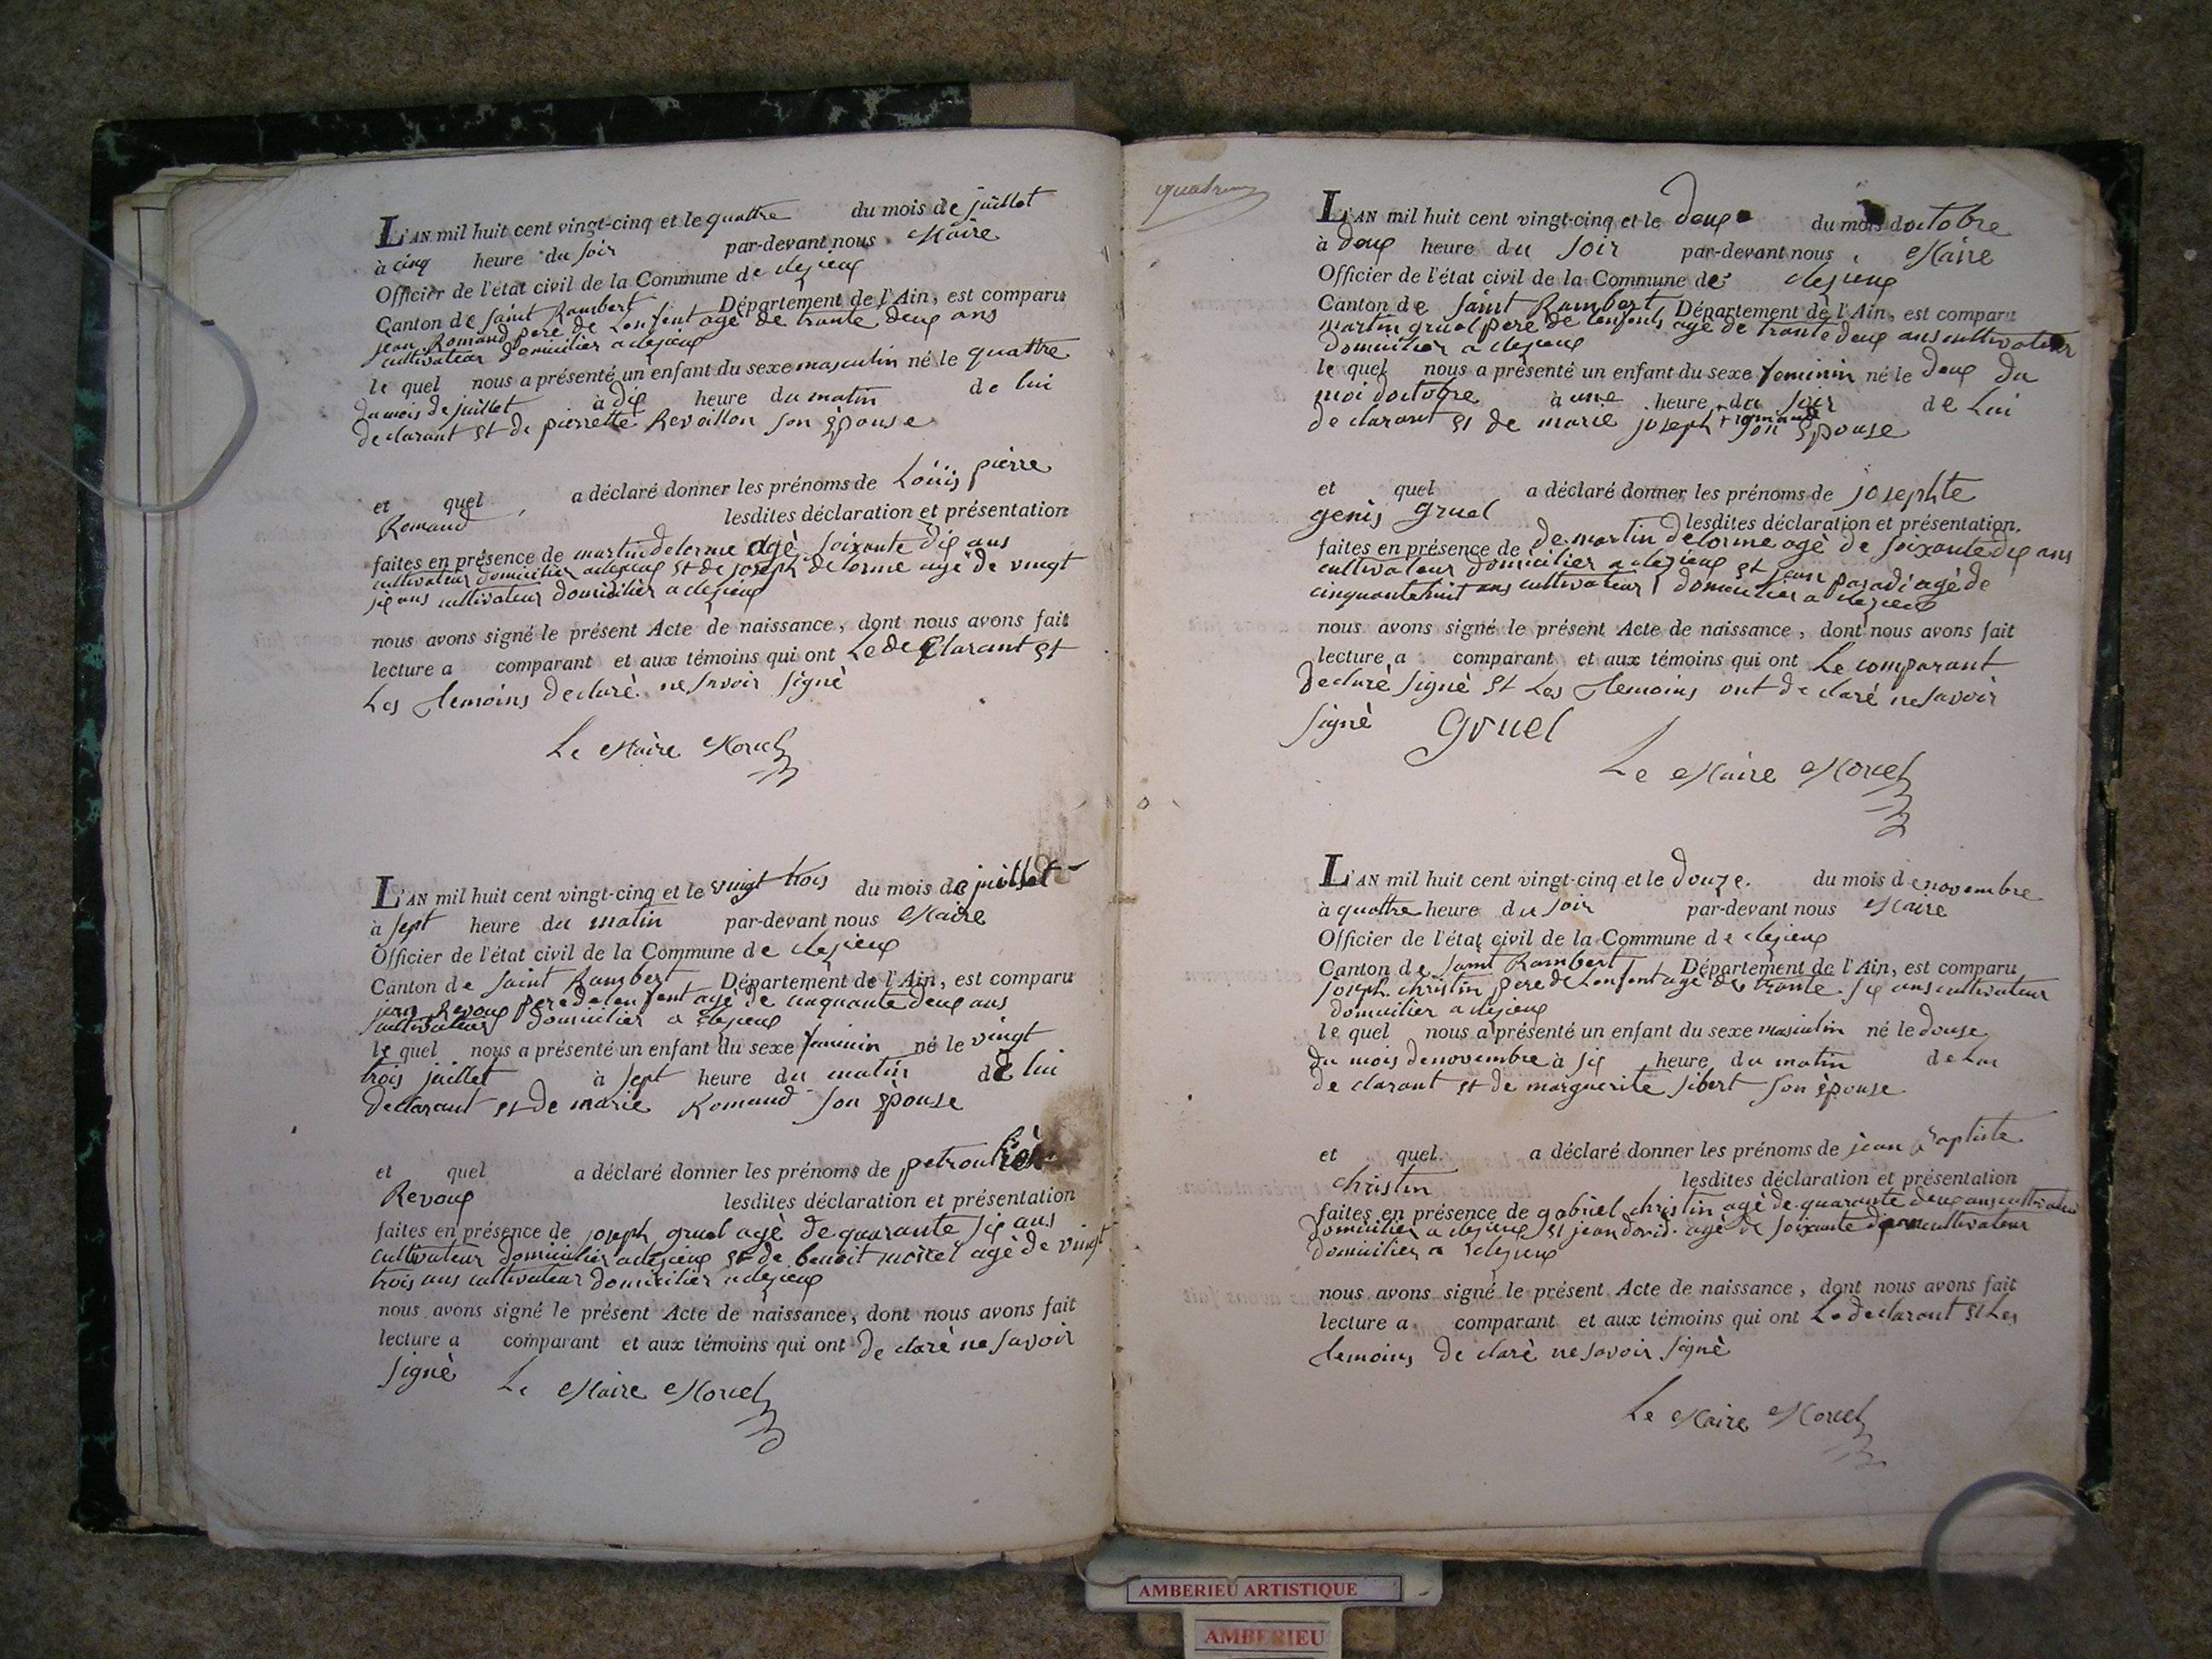 L'AN mil huit cent vingt-cinq et le quattre du mois de juillet
à cinq heure du soir par-devant nous Maire
Officier de l'état civil de la Commune de clezieux
Canton de saint Rambert Département de l'Ain, est comparu
jean Romand pere de Lenfent agé de trante deux ans
cultivateur domicilier a clezieux
le quel nous a présenté un enfant du sexe masculin né le quattre
du mois de juillet à dix heure du matin de lui
declarant et de pierrette Revoillon son épouse
et quel a déclaré donner les prénoms de Loüis pierre
Romand lesdites déclaration et présentation
faites en présence de martin delorme agè soixante dix ans
cultivateur domicilier a clezieux et de joseph delorme agé de vingt
six ans cultivateur domicilièr a clezieux
nous avons signé le présent Acte de naissance, dont nous avons fait
lecture a comparant et aux témoins qui ont Le declarant et
Les temoins declarè ne savoir signè
Le Maire Morel
L'AN mil huit cent vingt-cinq et le vingt trois du mois de juillet
à sept heure du matin par-devant nous Maire
Officier de l'état civil de la Commune de clezieux
Canton de saint Rambert Département de l'Ain, est comparu
jean Revoux pere de lenfent agè de cinquante deux ans
cultivateur domicilier a clezieux
le quel nous a présenté un enfant du sexe feminin né le vingt
trois juillet à sept heure du matin de lui
declarant et de marie Romand son épouse
et quel a déclaré donner les prénoms de
Revoux lesdites déclaration et présentation
faites en présence de joseph gruel agè de quarante six ans
cultivateur domicilier a clezieux et de benoit morel agè de vingt
trois ans cultivateur domicilier a clezieux
nous avons signé le présent Acte de naissance, dont nous avons fait
lecture a comparant et aux témoins qui ont de clarè ne savoir
signè Le Maire Morel
L'AN mil huit cent vingt-cinq et le deux du mois doctobre
à deux heure du soir par-devant nous Maire
Officier de l'état civil de la Commune de clezieux
Canton de saint Rambert Département de l'Ain, est comparu
martin gruel pere de lenfents agé de trante deux ans cultivateur
domicilièr a clezieux
le quel nous a présenté un enfant du sexe feminin né le deux du
moi doctobre à une heure du soir de Lui
de clarant et de marie joseph + romand son épouse
et quel a déclaré donner les prénoms de josephte
genis gruel lesdites déclaration et présentation.
faites en présence de de martin delorme agè de soixante dix ans
cultivateur domicilier a clezieux et jean paradi agé de
cinquante huit ans cultivateur domicilier a clezieux
nous avons signé le présent Acte de naissance, dont nous avons fait
lecture a comparant et aux témoins qui ont Le comparant
declaré signè et Les temoins ont de claré ne savoir
signè Gruel
Le Maire Morel
L'AN mil huit cent vingt-cinq et le douze. du mois de novembre
à quattre heure du soir par-devant nous Maire
Officier de l'état civil de la Commune de clezieux
Canton de saint Rambert Département de l'Ain, est comparu
joseph christin pere de Lenfent agè de trante six ans cultivateur
domicilier a clezieux
le quel nous a présenté un enfant du sexe masculin né le douse
du mois de novembre à six heure du matin de Lui
de clarant et de marguerite sibert son épouse
et quel a déclaré donner les prénoms de jean Baptiste
christin lesdites déclaration et présentation
faites en présence de gabriel christin agè de quarante deux ans cultivateur
domicilier a clezieux et jean david agè de soixante dix ans cultivateur
domicilier a clezieux
nous avons signé le présent Acte de naissance, dont nous avons fait
lecture a comparant et aux témoins qui ont Le declarant et Les
temoins de clarè ne savoir signè
Le Maire Morel
AMBERIEU ARTISTIQUE
AMBERIEU